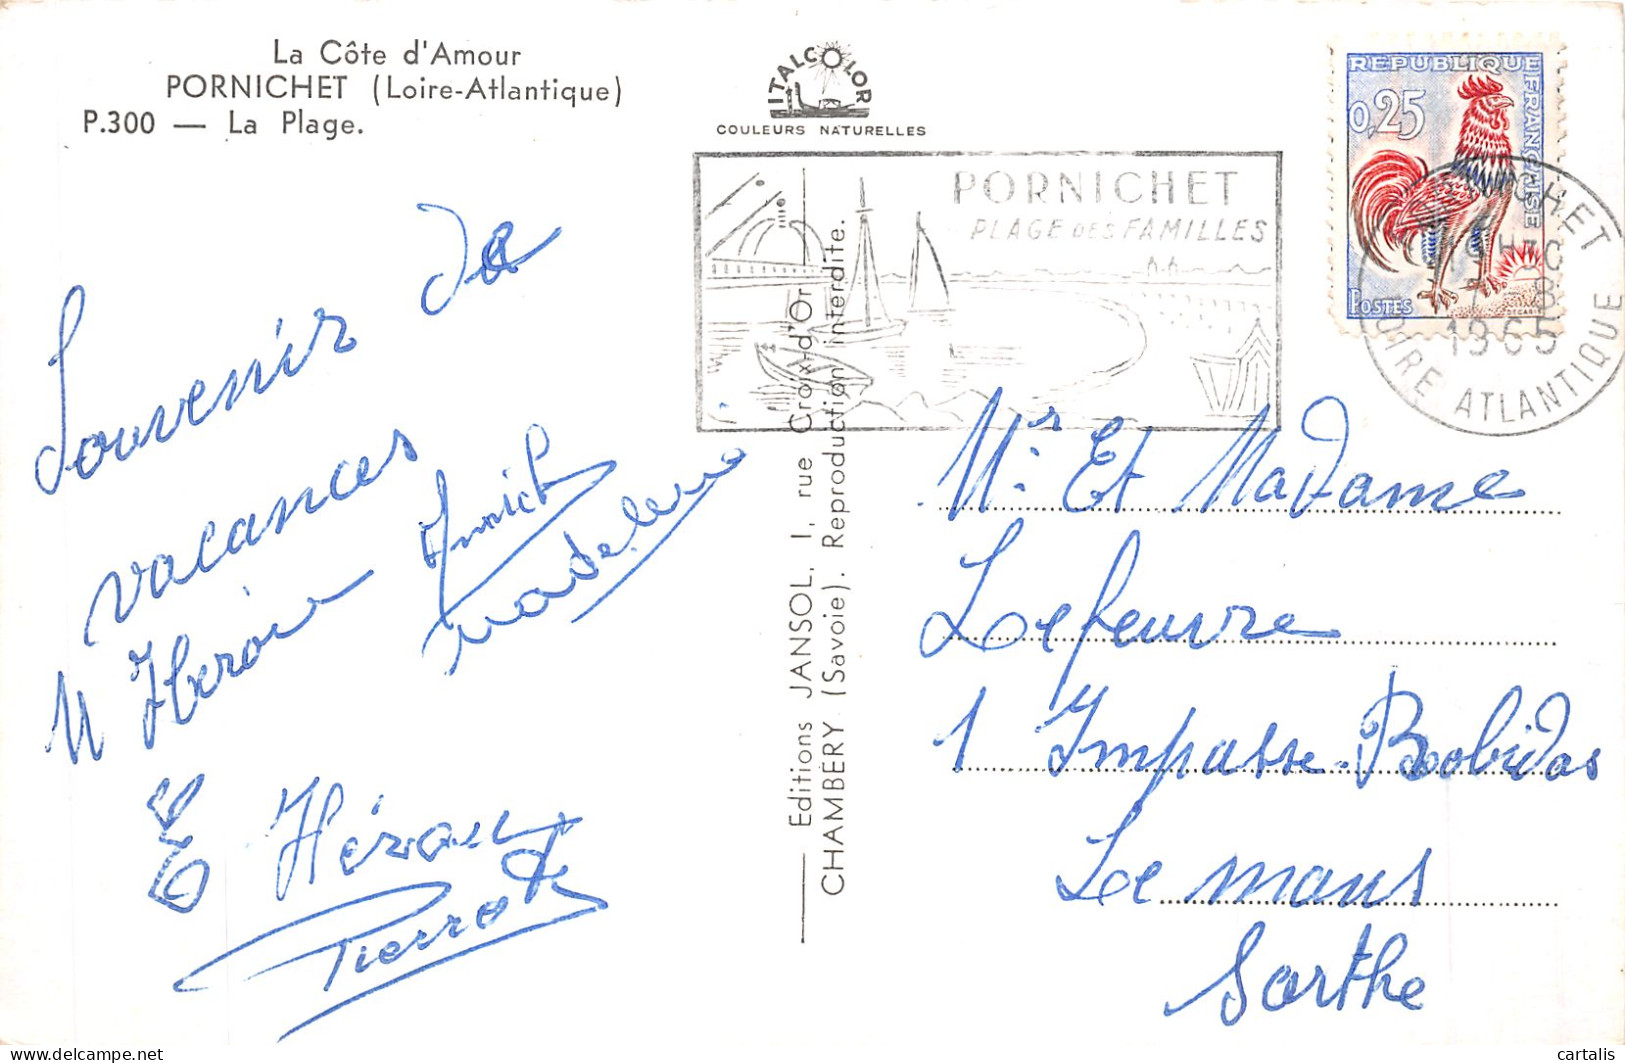 La Côte d'Amour
PORNICHET (Loire-Atlantique)
P.300 — La Plage.
ITALCOLOR
COULEURS NATURELLES
PORNICHET
PLAGE DES FAMILLES
REPUBLIQUE FRANÇAISE
0,25
POSTES
DECARIS
1965
LOIRE ATLANTIQUE
Souvenir de
vacances
Annick
Madeleine
M
E Hérou
Pierrot
Editions JANSOL, 1, rue Croix d'Or
CHAMBÉRY (Savoie). Reproduction interdite.
Mr Et Madame
Lefeuvre
1 Impasse Bobidas
Le mans
Sarthe
cartalis
delcampe.net